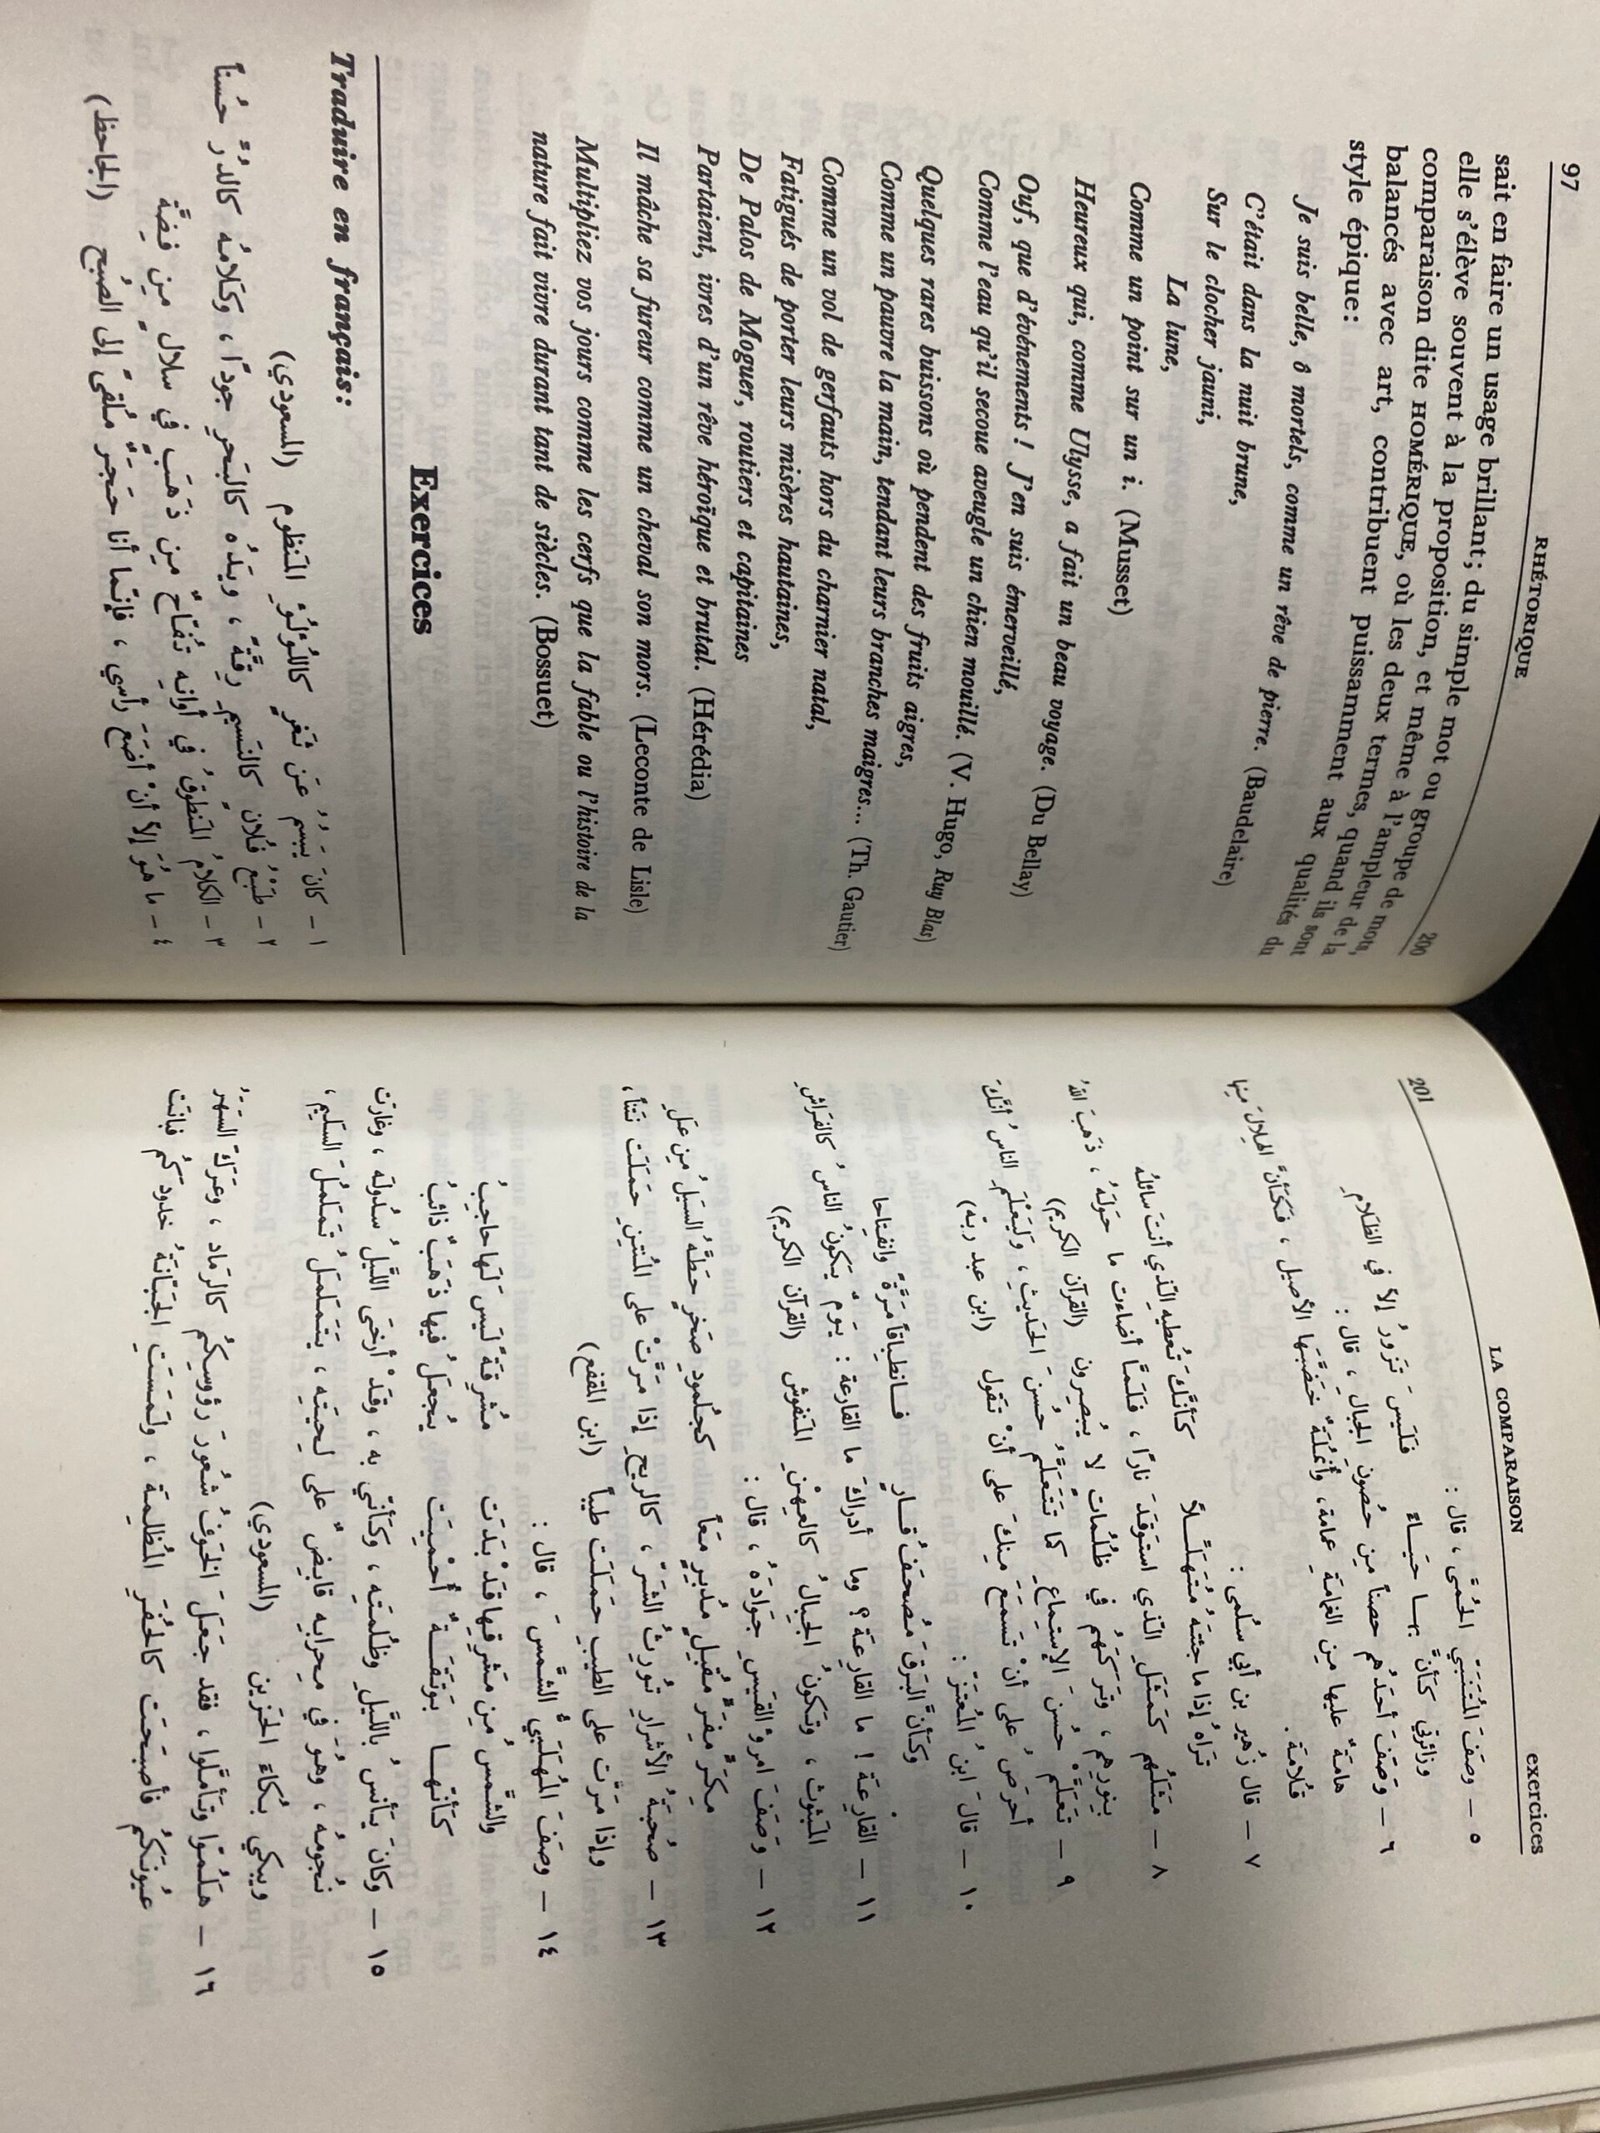 97
RHÉTORIQUE
200
sait en faire un usage brillant; du simple mot ou groupe de mots,
elle s'élève souvent à la proposition, et même à l'ampleur de la
comparaison dite HOMÉRIQUE, où les deux termes, quand ils sont
balancés avec art, contribuent puissamment aux qualités du
style épique:
Je suis belle, ô mortels, comme un rêve de pierre. (Baudelaire)
C'était dans la nuit brune,
Sur le clocher jauni,
La lune,
Comme un point sur un i. (Musset)
Heureux qui, comme Ulysse, a fait un beau voyage. (Du Bellay)
Ouf, que d'événements ! J'en suis émerveillé,
Comme l'eau qu'il secoue aveugle un chien mouillé. (V. Hugo, Ruy Blas)
Quelques rares buissons où pendent des fruits aigres,
Comme un pauvre la main, tendant leurs branches maigres... (Th. Gautier)
Comme un vol de gerfauts hors du charnier natal,
Fatigués de porter leurs misères hautaines,
De Palos de Moguer, routiers et capitaines
Partaient, ivres d'un rêve héroïque et brutal. (Hérédia)
Il mâche sa fureur comme un cheval son mors. (Leconte de Lisle)
Multipliez vos jours comme les cerfs que la fable ou l'histoire de la
nature fait vivre durant tant de siècles. (Bossuet)
Exercices
Traduire en français:
١ – كانَ يَبسِمُ عَن ثَغرٍ كاللُؤلُؤِ المَنظوم (المسعودي)
٢ – طَبْعُ فُلانٍ كالنَسيمِ رِقَّةً ، ويَدُه كالبَحرِ جودًا ، وكَلامُه كالدُرِّ حُسناً
٣ – الكلامُ المَنطوقُ في أوانِه تُفّاحٌ مِن ذَهَبٍ في سلالٍ مِن فِضَّة
٤ – ما هُوَ إلاّ أنْ أضَعَ رأسي ، فإنّما أنا حَجَرٌ مُلقىً إلى الصُبح (الجاحظ)
201
LA COMPARAISON
exercices
٥ – وصَفَ المُتَنَبّي الحُمّى ، قال :
وزائرَتي كأنَّ بهـا حيَـاءً فلَيسَ تَزورُ إلاّ في الظَلامِ
٦ – وَصَفَ أحدُهم حصناً مِن حُصونِ الجبالِ ، قال :
هامَةٌ عليها مِن الغَمامَةِ عِمامة، وأنمُلَةٌ خضَّبَها الأصيل ، فكَأنَّ الهلالَ مِنها
قُلامَة.
٧ – قال زُهَير بن أبي سُلمى :
تَراهُ إذا ما جِئتَهُ مُتَهَلِّـلاً كأنَّكَ تُعطيهِ الّذي أنتَ سائلُه
٨ – مَثَلُهم كمَثَلِ الّذي استَوقَدَ نارًا ، فلَمّا أضاءَت ما حَولَهُ ، ذهبَ اللهُ
بِنورِهم ، وتَركَهُم في ظُلُمات لا يُبصِرون (القرآن الكريم)
٩ – تَعَلَّمْ حُسنَ الإستِماعِ كما تَتَعَلَّمُ حُسنَ الحَديثِ ، ولْيَعْلَمِ الناسُ أنَّكَ
أحرَصُ على أنْ تَسمَعَ مِنكَ على أنْ تَقول (ابن عبد ربّه)
١٠ – قالَ ابنُ المُعتَزّ :
وكأنَّ البَرقَ مُصحَفُ قـارٍ فـانطِباقاً مَرَّةً وانفِتاحا
١١ – القارِعَة ! ما القارِعَة ؟ وما أدراكَ ما القارعة : يَومٌ يَكونُ الناسُ كالفَراشِ
المَبثوث ، وتَكونُ الجبالُ كالعِهنِ المَنفوش (القرآن الكريم)
١٢ – وَصَفَ امروُ القَيسِ جَوادَهُ ، قال :
مِكَرٍّ مِفَرٍّ مُقبِلٍ مُدبِرٍ مَعاً كجُلمودِ صَخرٍ حَطَّهُ السَيلُ مِن عَلِ
١٣ – صُحبَةُ الأشرارِ تورِثُ الشَرّ ، كالريحِ إذا مرَّتْ على المُنتِنِ حمَلَت نَتْناً ،
وإذا مرَّت على الطيبِ حَمَلَت طيباً (ابن المقفع)
١٤ – وصَفَ المُهَلَّبيّ الشَمسَ ، قال :
والشَمسُ مِن مَشرِقِها قَدْ بَدَت مُشرِقَةً لَيسَ لَها حاجِبُ
كأنّهـا بَوتَقَـةٌ أُحْمِيَت يُجعَلُ فيها ذَهَبٌ ذائبُ
١٥ – وكانَ يأنسُ باللَيلِ وظُلمَتِه ، وكأنّي به ، وقَدْ أرخَى اللَيلُ سُدولَه ، وغارَت
نُجومُه ، وهُوَ في مِحرابِه قابِضٌ على لحيَتِه ، يتَمَلمَلُ تَمَلمُلَ السَليم ،
ويبكي بُكاءَ الحَزين (المسعودي)
١٦ – هَلُمّوا وتأمَّلوا ، فقد جَعَلَ الخَوفُ شُعورَ رؤوسِكُم كالرَماد ، وعَرَكَ السَهَرُ
عيونَكُم فأصبَحَت كالحُفَرِ المُظلِمَة ، ولَمَسَتِ الجَبانَةُ خدودَكُم فبانَت